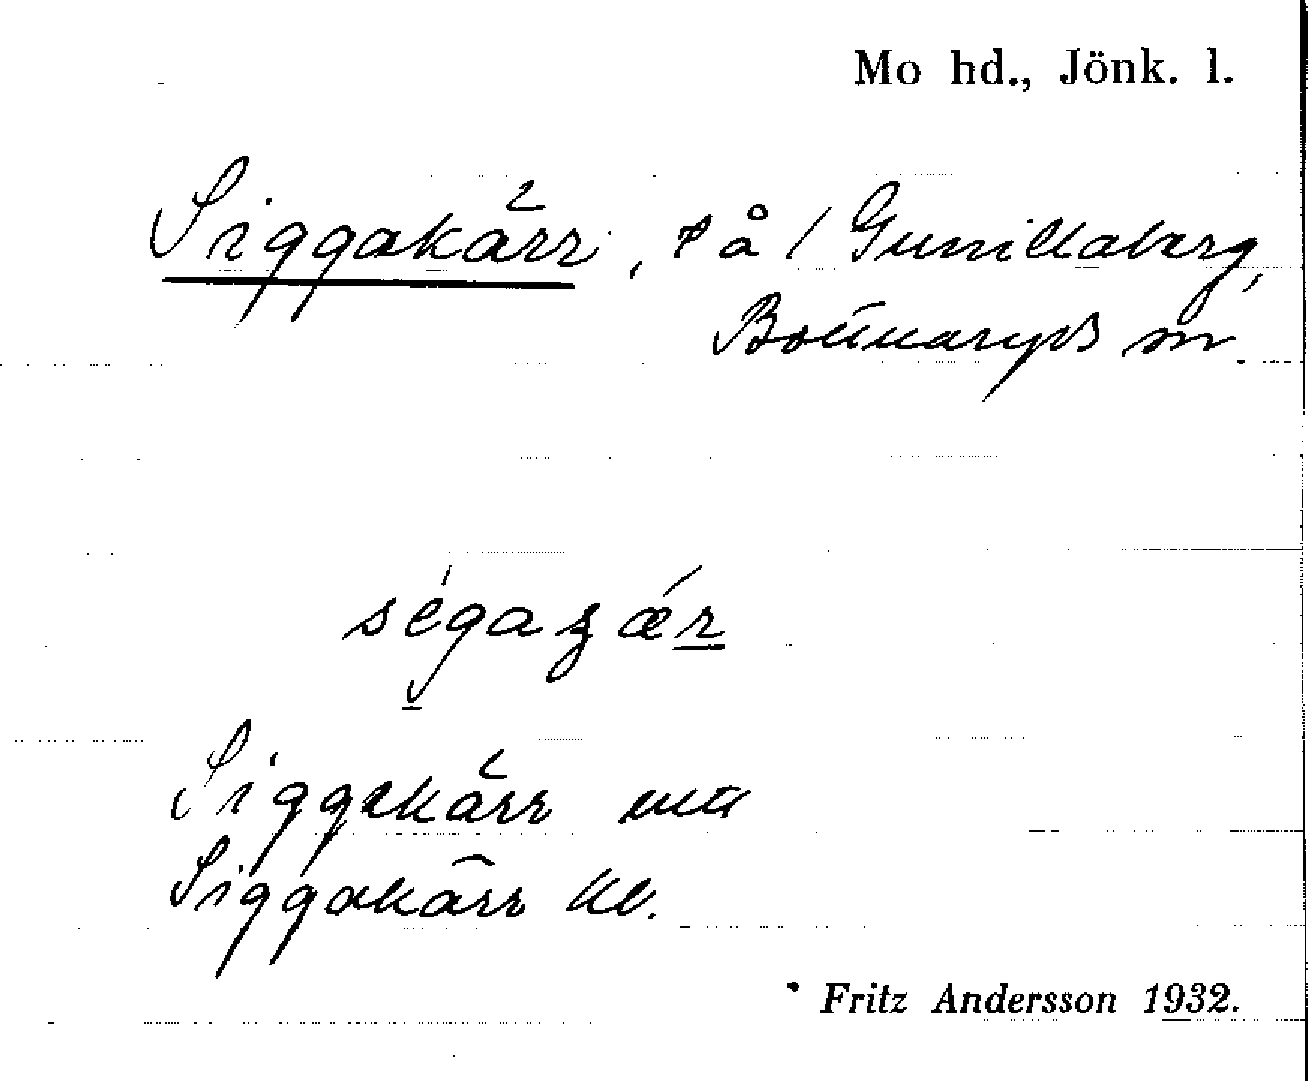 Mo hd., Jönk. l.
Siggakärr, på / Gunillaberg,
Bottnaryds sn.
segaʒær
Siggakärr
Siggakärr kl.
Fritz Andersson 1932.